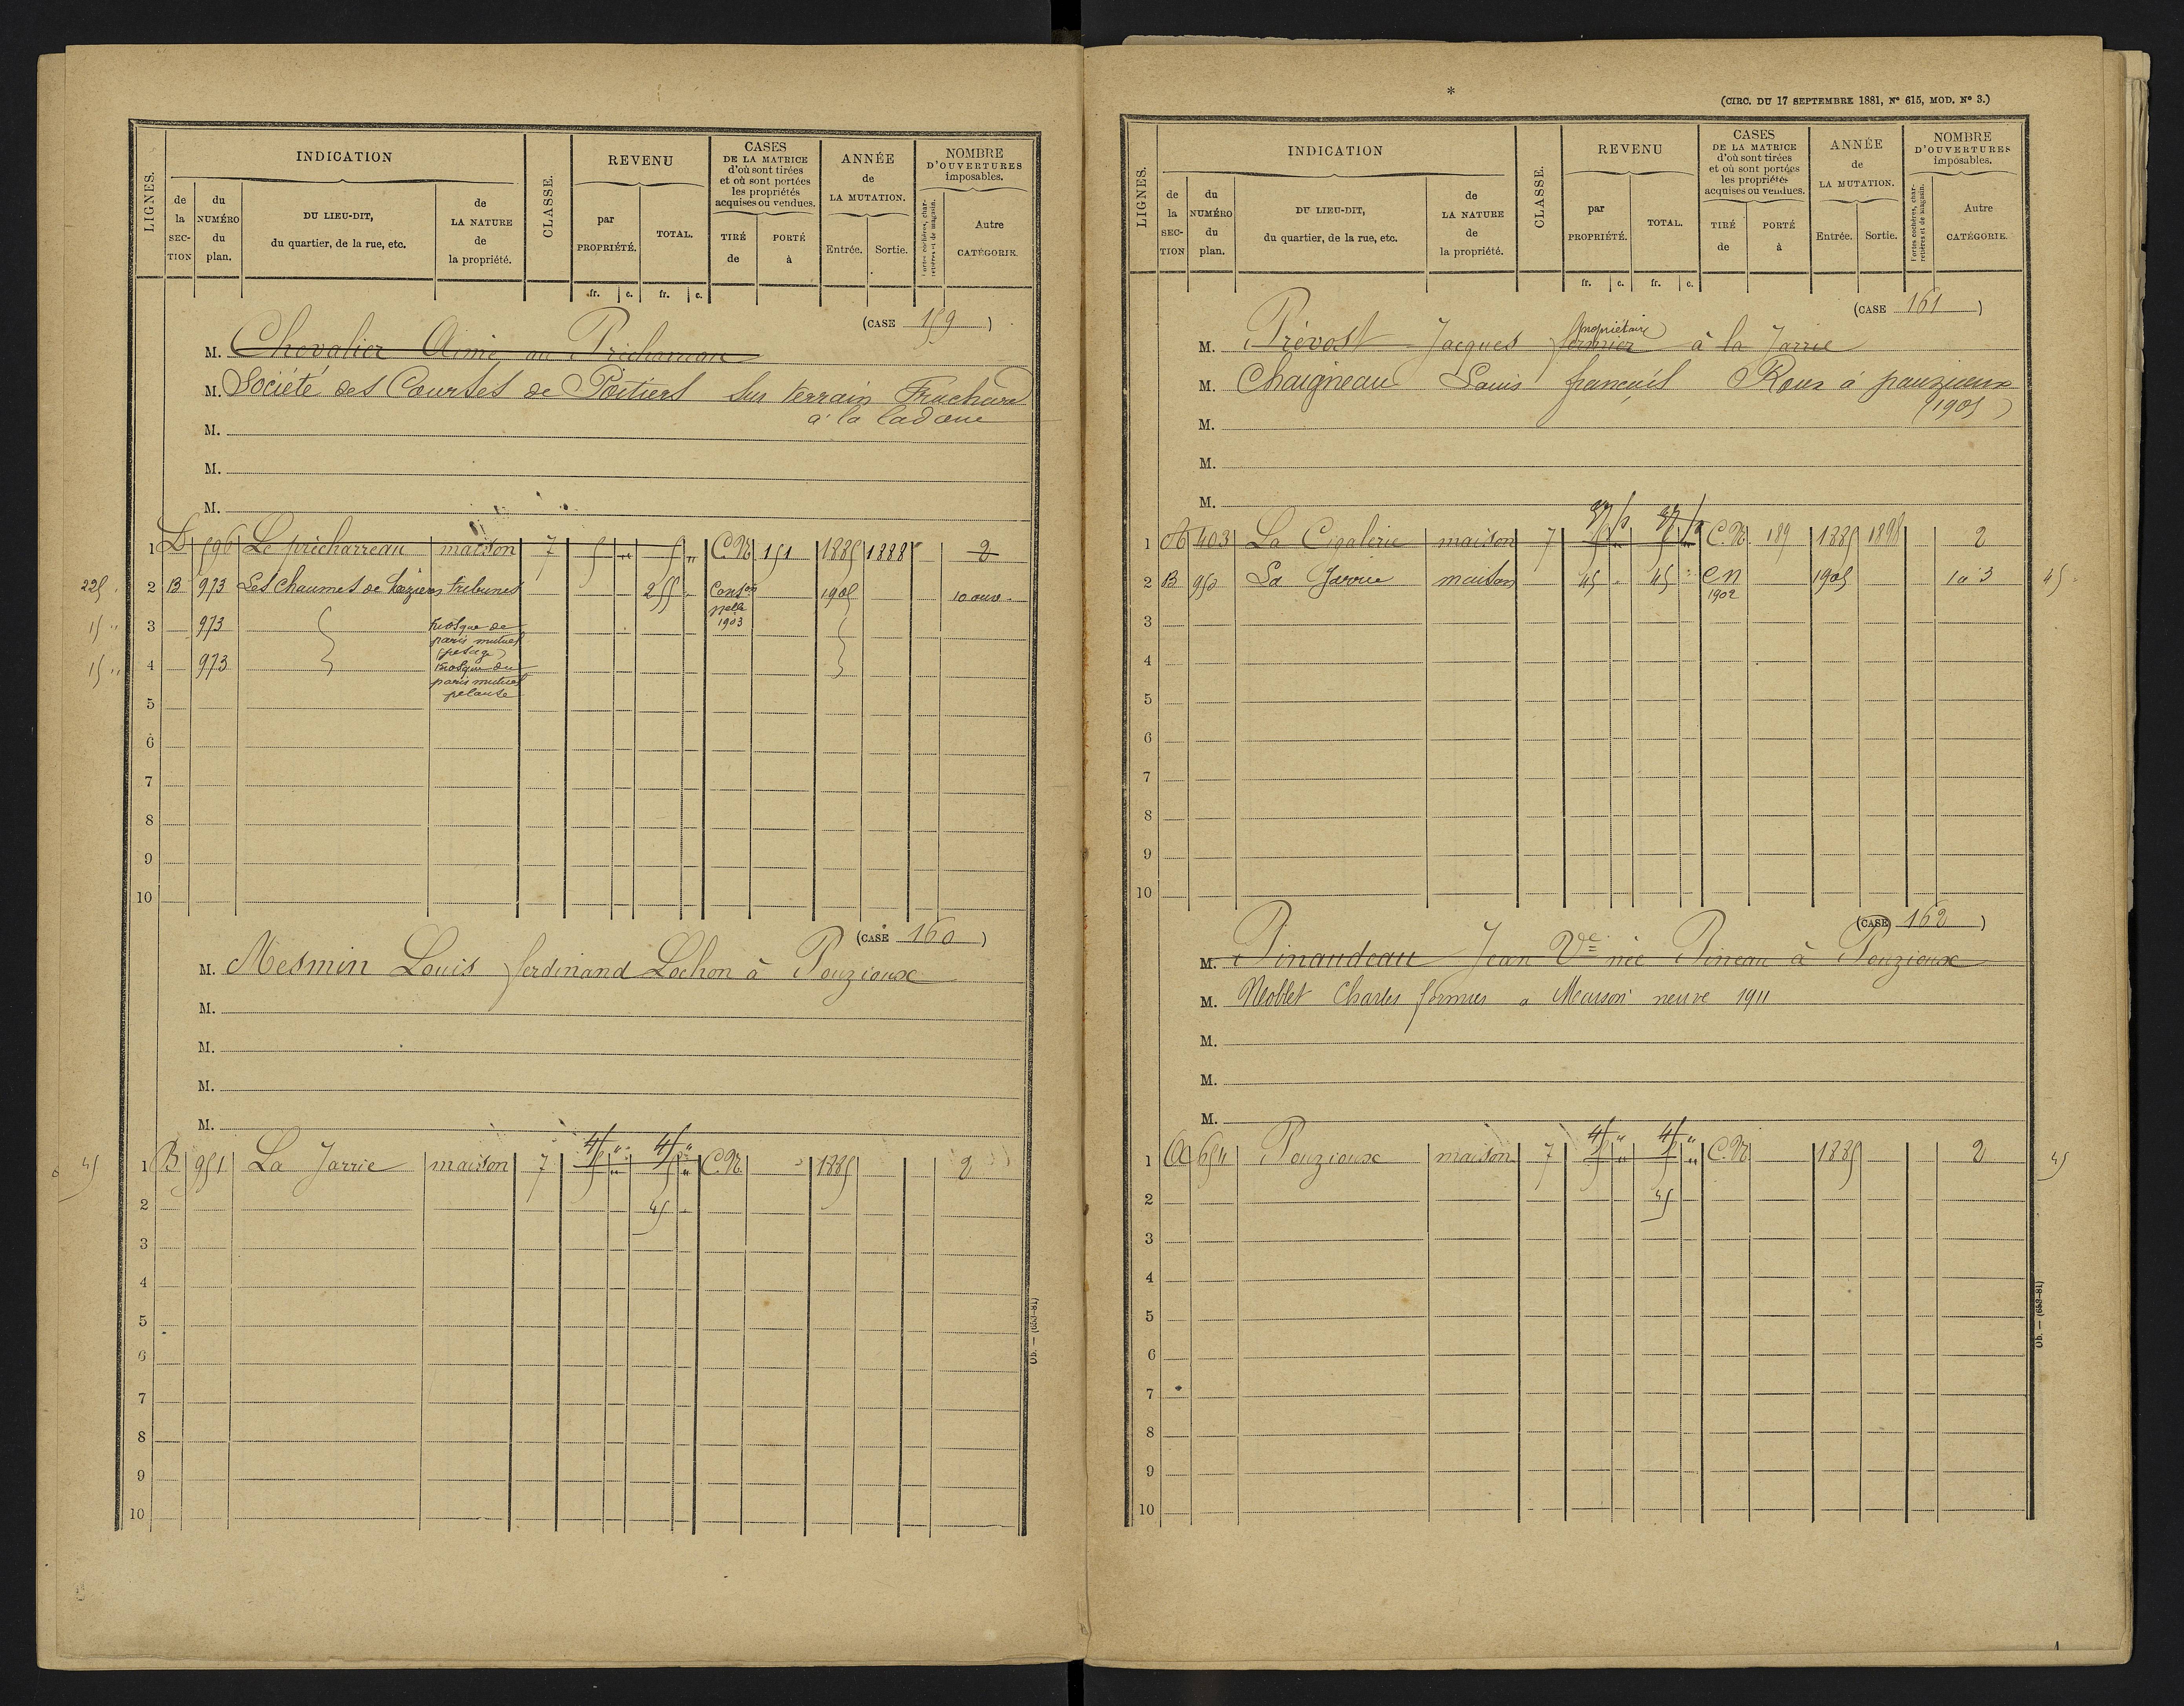 LIGNES.
INDICATION
de la SECTION
du NUMÉRO du plan.
DU LIEU-DIT, du quartier, de la rue, etc.
de LA NATURE de la propriété.
CLASSE.
REVENU
par PROPRIÉTÉ.
TOTAL.
CASES DE LA MATRICE d'où sont tirées et où sont portées les propriétés acquises ou vendues.
TIRÉ de
PORTÉ à
ANNÉE de LA MUTATION.
Entrée.
Sortie.
NOMBRE D'OUVERTURES imposables.
Portes cochères, charretières et de magasin.
Autre CATÉGORIE.
fr. c. fr. c.
(CASE 159)
M. Chevalier Aimé au
M. Société des Courses de Poitiers sur terrain Fruchard
à la
M.
M.
M.
1 D 596 Le précharreau maison 7 5 " 5 " C.N. 151 1885 1888 2
225 2 B 973 Les Chaumes de tribunes 255 1905 10 ouv.
15 " 3 973 Kiosque de 1903
paris mutuel
(pesage)
15 " 4 973 Kiosque du
paris mutuel
pelouse
5
6
7
8
9
10
(CASE 160)
M. Mesmin Louis ferdinand Lochon à Pouzioux
M.
M.
M.
M.
45 1 B 951 La Jarrie maison 7 45 " 45 " C.N. 1885 2
2 45
3
4
5
6
7
8
9
10
Ob. — (653-81)
*
(CIRC. DU 17 SEPTEMBRE 1881, N° 615, MOD. N° 3.)
LIGNES.
INDICATION
de la SECTION
du NUMÉRO du plan.
DU LIEU-DIT, du quartier, de la rue, etc.
de LA NATURE de la propriété.
CLASSE.
REVENU
par PROPRIÉTÉ.
TOTAL.
CASES DE LA MATRICE d'où sont tirées et où sont portées les propriétés acquises ou vendues.
TIRÉ de
PORTÉ à
ANNÉE de LA MUTATION.
Entrée.
Sortie.
NOMBRE D'OUVERTURES imposables.
Portes cochères, charretières et de magasin.
Autre CATÉGORIE.
fr. c. fr. c.
(CASE 161)
propriétaire
M. Prévost Jacques fermier à la Jarrie
M. Chaigneau Louis françois Roux à pouzioux
(1905)
M.
M.
M.
1 A 403 La maison 7 C.N. 189 1885 1898 2
2 B 950 La Jarrie maison 45 45 CN 1905 1 à 3 45
1902
3
4
5
6
7
8
9
10
(CASE 162)
M. Pinaudeau Jean Vve née Pineau à Pouzioux
M. Charles fermier a Maison neuve 1911
M.
M.
M.
1 A 654 Pouzioux maison 7 45 " 45 " C.N. 1885 2 45
2 45
3
4
5
6
7
8
9
10
Ob. — (653-81)